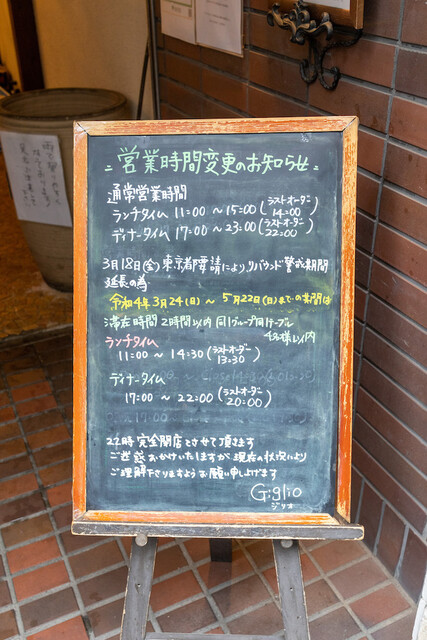 営業時間変更のお知らせ
通常営業時間
ランチタイム 11:00 ～ 15:00 (ラストオーダー 14:00)
ディナータイム 17:00 ～ 23:00 (ラストオーダー 22:00)
3月18日(金) 東京都要請により、リバウンド警戒期間
延長の為
令和4年3月24日(日) ～ 5月22日(日)までの期間は
滞在時間 2時間以内 同1グループ同1テーブル
4名様以内
ランチタイム
11:00 ～ 14:30 (ラストオーダー 13:30)
ディナータイム
17:00 ～ 22:00 (ラストオーダー 20:00)
22時 完全閉店とさせて頂きます
ご迷惑おかけいたしますが 現在の状況により
ご理解下さりますようお願い申し上げます
Giglio
ジリオ